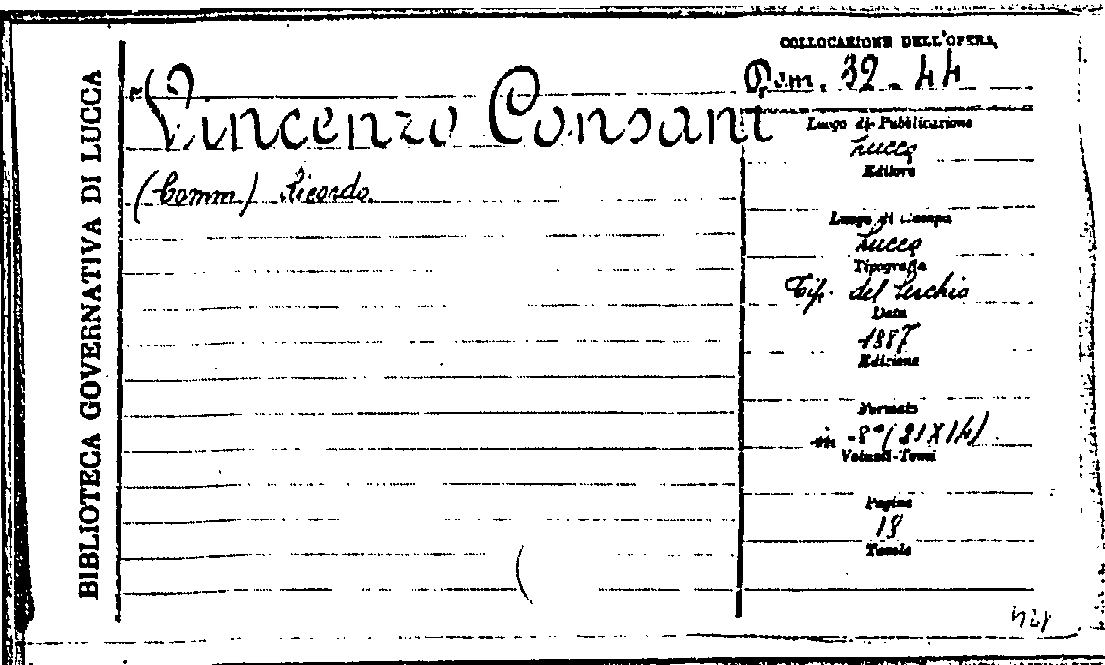 BIBLIOTECA GOVERNATIVA DI LUCCA
Vincenzo Consani
(Comm) Ricordo.
COLLOCAZIONE DELL'OPERA
32 - 44
Luogo di Pubblicazione
Lucca
Editore
Luogo di Stampa
Lucca
Tipografia
Tip. del Serchio
Data
1887
Edizione
Formato
in -8° (21X14)
Volumi-Tomi
Pagine
Tavole